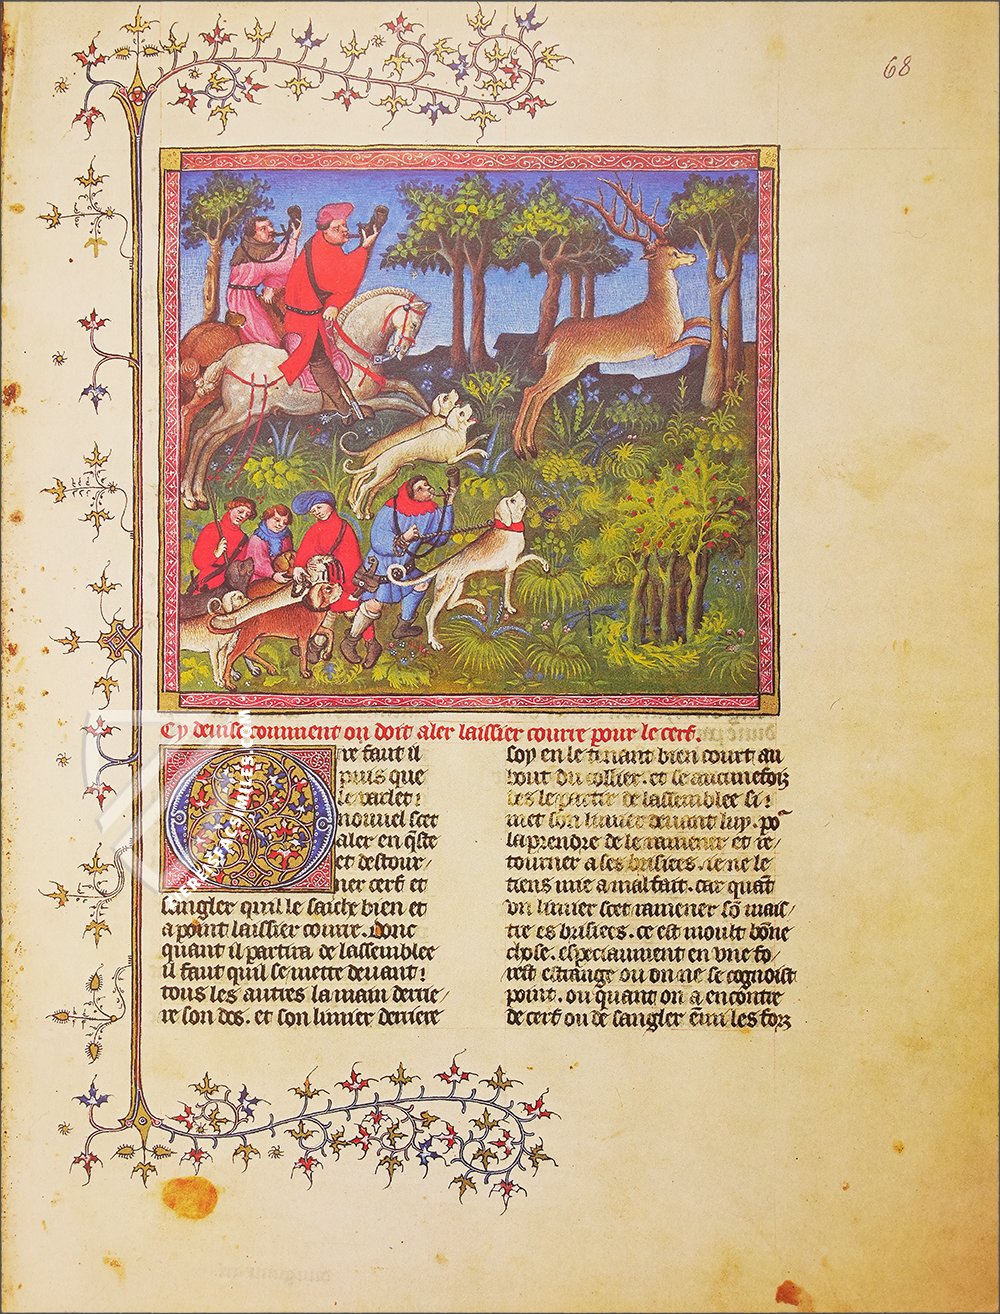 68
Cy deuise comment on doit aler laissier courre pour le cerf.
Ore faut il
puis que
le varlet
nouuel scet
aler en q̄ste
et destour/
ner cerf et
sangler quil le saiche bien et
a point laissier courre. Donc
quant il partira de lassemblee
il faut quil se mette deuant
tous les autres la main derrie/
re son dos. et son limier derriere
soy en le tenant bien court au
bout du collier. et se aucunefoiz
des le partir de lassemblee si
met son limier deuant luy. po
laprendre de le ramener et re/
tourner a ses brisiees. ie ne le
tiens mie a mal fait. car quāt
vn limier scet ramener sō mais/
tre es brisiees. ce est moult bōne
chose. especiaument en vne fo/
rest estrange ou on ne se cognoist
point. ou quant on a encontre
de cerf ou de sangler
ZIEREIS FACSIMILES.COM